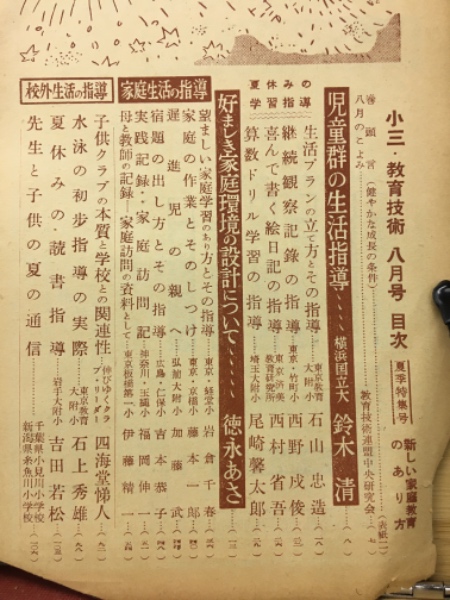 小三・教育技術 八月号 目次
夏季特集号
新しい家庭教育
のあり方
巻頭言(健やかな成長の条件)………教育技術連盟中央研究会…(七)
八月のこよみ………(表紙二)
児童群の生活指導 横浜国立大 鈴木清…(八)
夏休みの
学習指導
生活プランの立て方とその指導…東京教育大附小 石山忠造
継続観察記録の指導…東京・竹町小 西野戌俊
喜んで書く絵日記の指導…東京・済美教育研究所 西村省吾
算数ドリル学習の指導…埼玉大附小 尾崎馨太郎
好ましき家庭環境の設計について 徳永あさ
家庭生活の指導
望ましい家庭学習のあり方とその指導…東京・経堂小 岩倉千春
家庭の作業とそのしつけ…東京・京橋小 藤本一郎
遅進児の親へ…弘前大附小 加藤武
宿題の出し方とその指導…広島・仁保小 吉本恭子
実践記録・家庭訪問記…神奈川・玉縄小 福岡伸一
母と教師の記録―家庭訪問の資料として…東京板橋第一小 伊藤精一
校外生活の指導
子供クラブの本質と学校との関連性 四海堂悌人
水泳の初歩指導の実際…東京教育大附小 石上秀雄
夏休みの・読書指導…岩手大附小 吉田若松
先生と子供の夏の通信…千葉県小見川小学校
新潟県糸魚川小学校